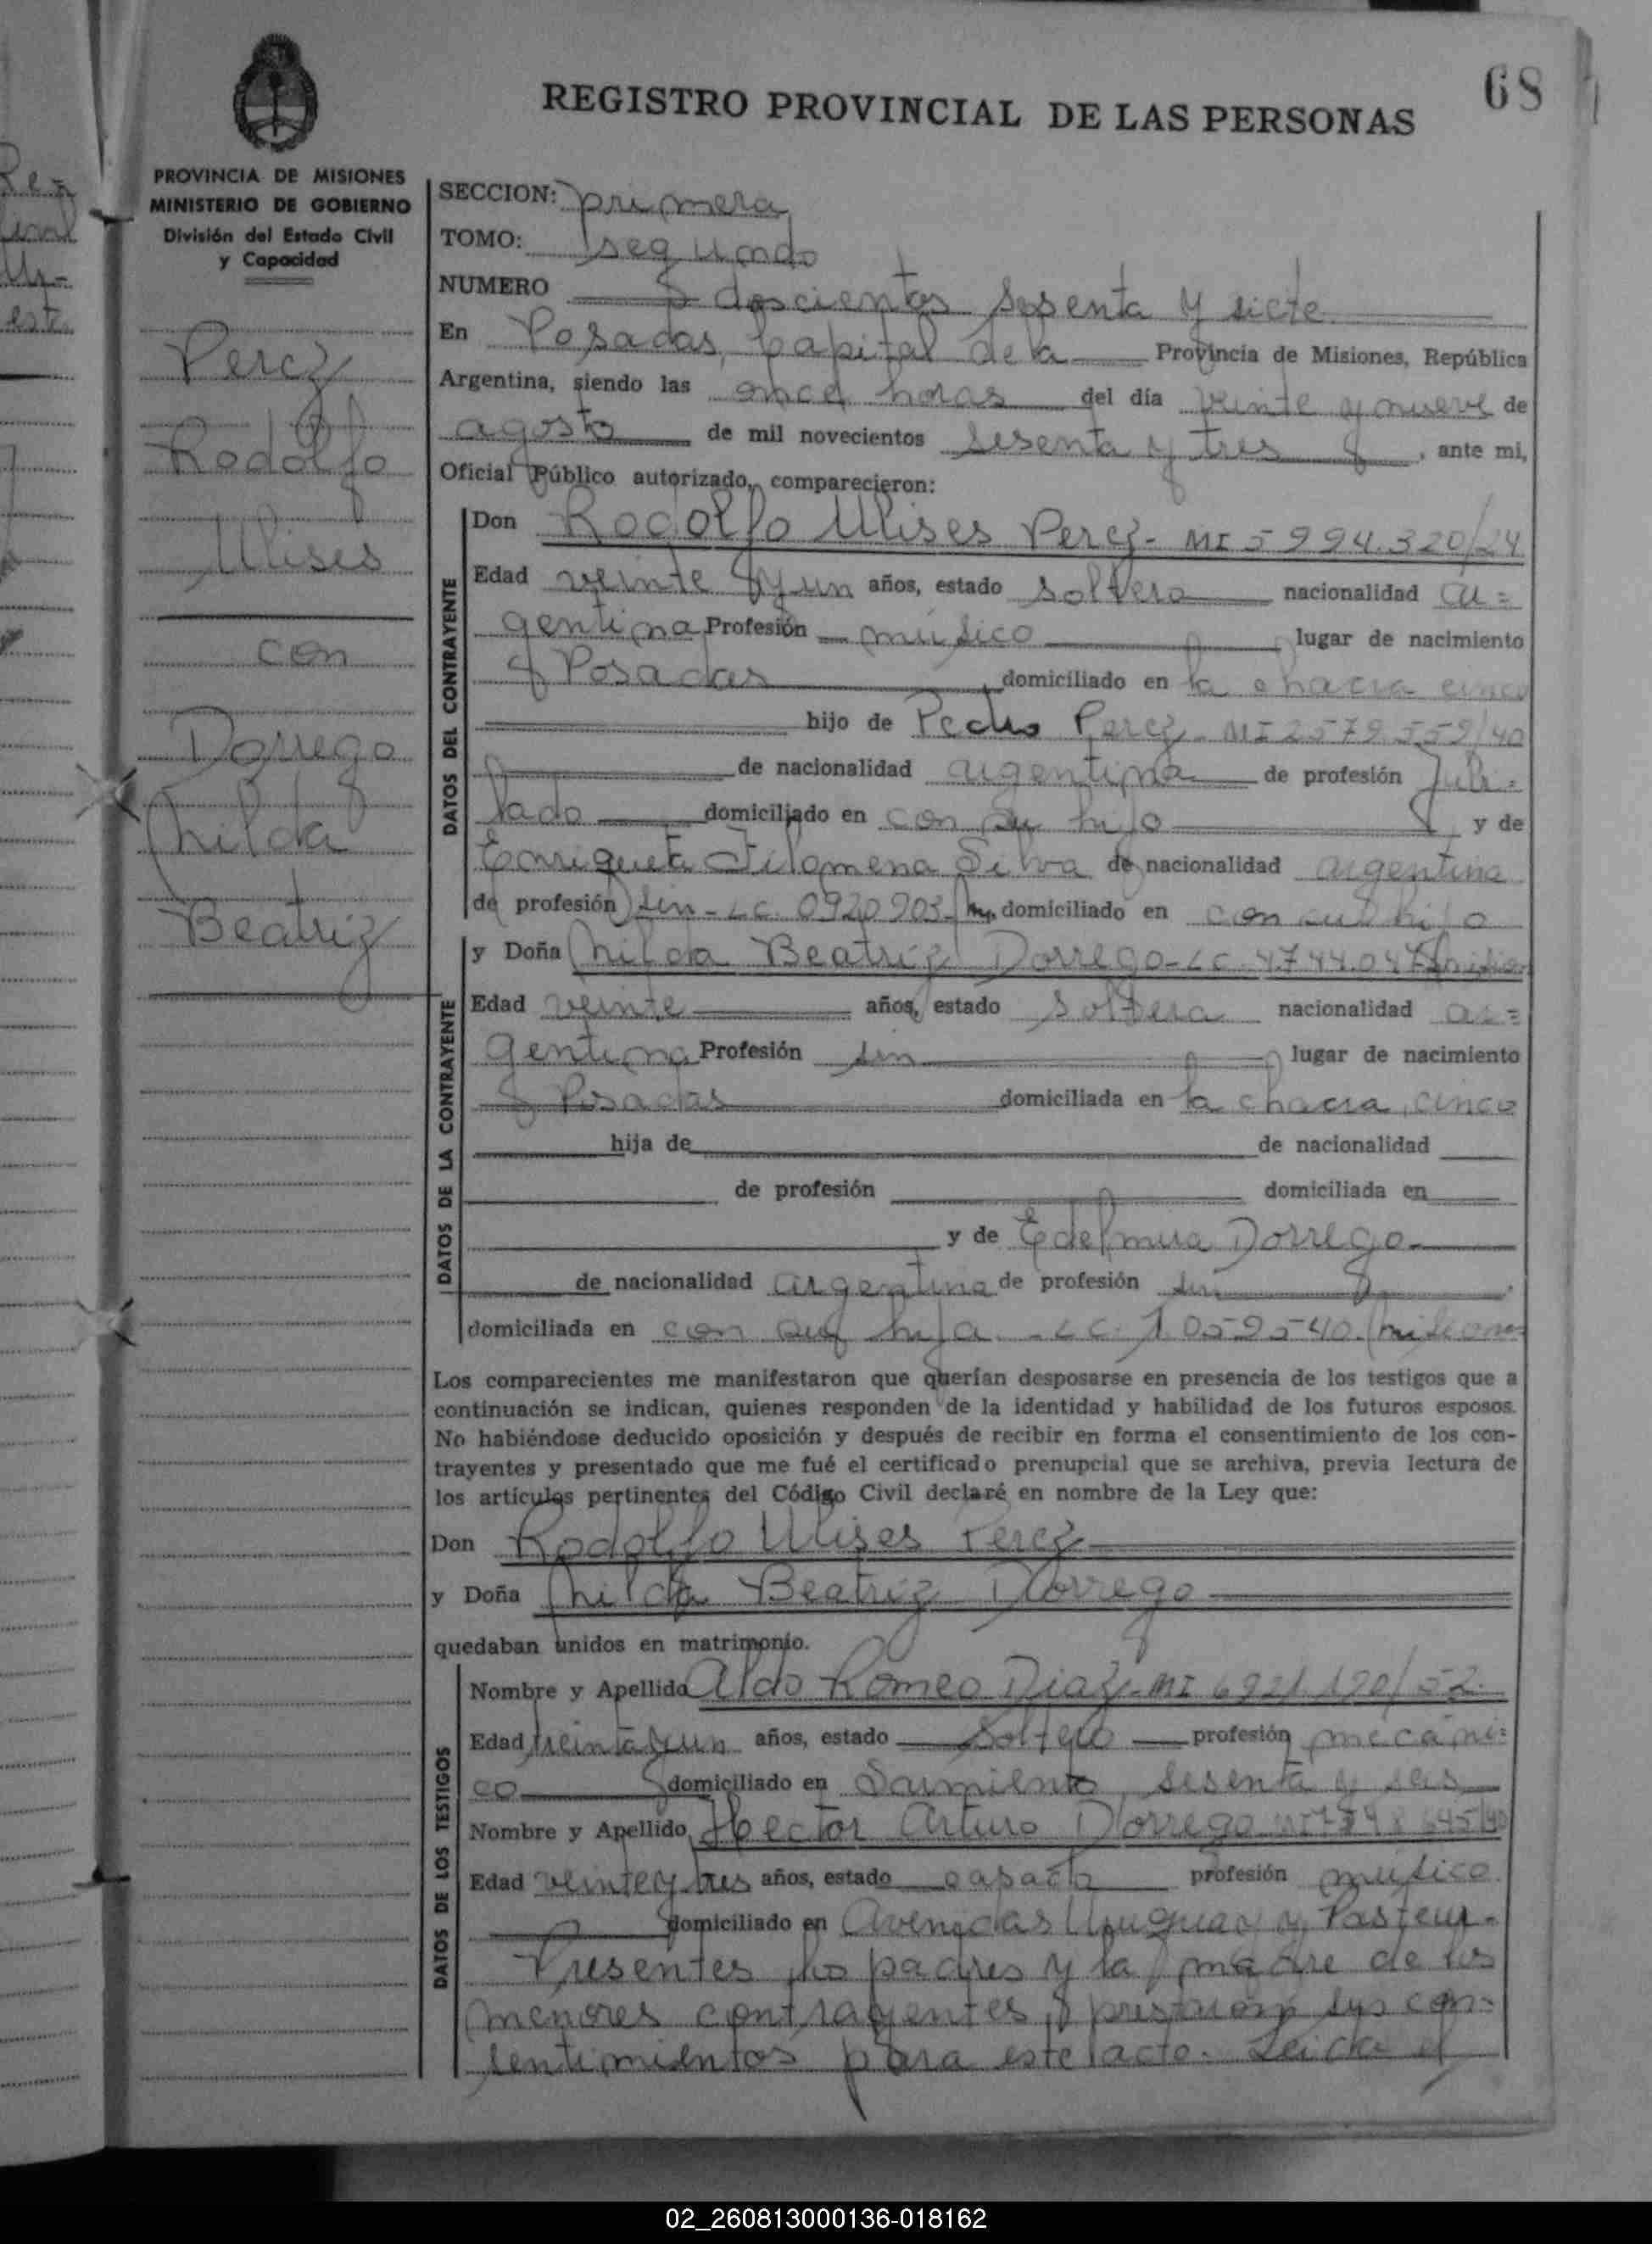 68
REGISTRO PROVINCIAL DE LAS PERSONAS
PROVINCIA DE MISIONES
MINISTERIO DE GOBIERNO
División del Estado Civil
y Capacidad
Perez
Rodolfo
Ulises
con
Dorrego
hilda
Beatriz
SECCION: primera
TOMO: segundo
NUMERO doscientos sesenta y siete
En Posadas, Capital de la Provincia de Misiones, República
Argentina, siendo las once horas del día veinte y nueve de
agosto de mil novecientos sesenta y tres, ante mi,
Oficial Público autorizado, comparecieron:
DATOS DEL CONTRAYENTE
Don Rodolfo Ulises Perez - MI 5994.320/24
Edad veinte y un años, estado soltero nacionalidad ar=
gentina Profesión músico lugar de nacimiento
Posadas domiciliado en la chacra cinco
hijo de Pedro Perez - MI 2579.559/40
de nacionalidad argentina de profesión Jubi=
lado domiciliado en con su hijo y de
Enriqueta Filomena Silva de nacionalidad argentina
de profesión sin - LC. 0920903 domiciliado en con su hijo
DATOS DE LA CONTRAYENTE
y Doña hilda Beatriz Dorrego - LC 4.744.047
Edad veinte años, estado soltera nacionalidad ar=
gentina Profesión sin lugar de nacimiento
Posadas domiciliada en la chacra, cinco
hija de de nacionalidad
de profesión domiciliada en
y de Edelmira Dorrego
de nacionalidad argentina de profesión sin
domiciliada en con su hija - LC. 1.059540/misiones
Los comparecientes me manifestaron que querían desposarse en presencia de los testigos que a
continuación se indican, quienes responden de la identidad y habilidad de los futuros esposos.
No habiéndose deducido oposición y después de recibir en forma el consentimiento de los con-
trayentes y presentado que me fué el certificado prenupcial que se archiva, previa lectura de
los artículos pertinentes del Código Civil declaré en nombre de la Ley que:
Don Rodolfo Ulises Perez
y Doña hilda Beatriz Dorrego
quedaban unidos en matrimonio.
DATOS DE LOS TESTIGOS
Nombre y Apellido Aldo Romeo Diaz - MI 6921.190/52
Edad treinta y un años, estado soltero profesión mecáni=
co domiciliado en Sarmiento, sesenta y seis
Nombre y Apellido Hector Arturo Dorrego
Edad veinte y tres años, estado casado profesión músico.
domiciliado en Avenidas Uruguay y Pasteur.
Presentes los padres y la madre de los
menores contrayentes, prestaron sus con=
sentimientos para este acto. Leida el
02_260813000136-018162